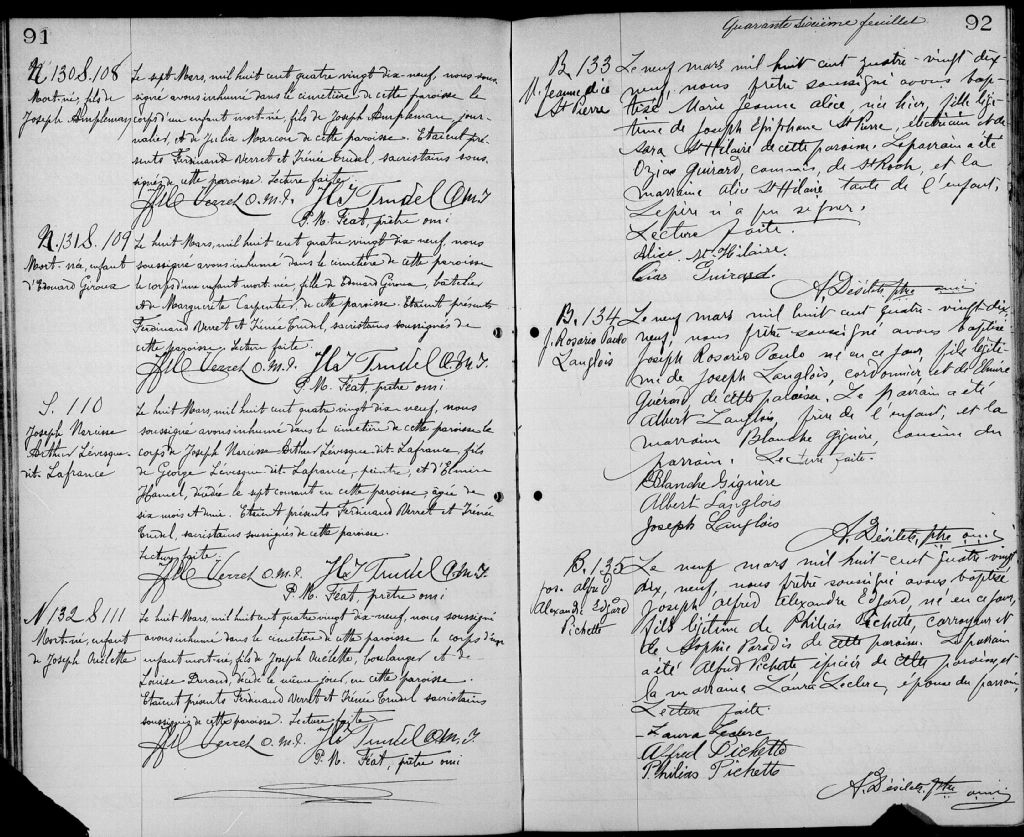 91
N. 130 S. 108
Mort-né, fils de
Joseph Ampleman
Le sept Mars, mil huit cent quatre vingt dix-neuf, nous sous-
signé avons inhumé dans le cimetière de cette paroisse le
corps d'un enfant mort-né, fils de Joseph Ampleman jour-
nalier, et de Julia Marcoux de cette paroisse. Etaient pré-
sents Ferdinand Verret et Irénée Trudel, sacristains sous-
signés de cette paroisse. Lecture faite.
Verret O.M.I. Trudel O.M.I
P. M. Féat, prêtre omi
N. 131 S. 109
Mort-née, enfant
d'Edouard Giroux
Le huit Mars, mil huit cent quatre vingt dix-neuf, nous
soussigné avons inhumé dans le cimetière de cette paroisse
le corps d'un enfant mort-née, fille de Edouard Giroux, batelier
et de Marguerite Carpentier de cette paroisse. Etaient présents
Ferdinand Verret et Irénée Trudel, sacristains soussignés de
cette paroisse. Lecture faite.
Verret O.M.I. Trudel O.M.I
P. M. Féat, prêtre omi
S. 110
Joseph Narcisse
Arthur Lévesque
dit Lafrance
Le huit Mars, mil huit cent quatre vingt dix-neuf, nous
soussigné avons inhumé dans le cimetière de cette paroisse le
corps de Joseph Narcisse Arthur Lévesque dit Lafrance, fils
de George Lévesque dit Lafrance, peintre, et d'Elmire
Hamel, décédée le sept courant en cette paroisse, âgée de
six mois et demie. Etaient présents Ferdinand Verret et Irénée
Trudel, sacristains soussignés de cette paroisse.
Lecture faite.
Verret O.M.I. Trudel O.M.I.
P. M. Féat, prêtre omi
N 132 S 111
Mort-né, enfant
de Joseph Ouélette
Le huit Mars, mil huit cent quatre vingt dix-neuf, nous soussigné
avons inhumé dans le cimetière de cette paroisse le corps d'un
enfant mort-né, fils de Joseph Ouélette, boulanger et de
Louise Durand, décédé le même jour, en cette paroisse.
Etaient présents Ferdinand Verret et Irénée Trudel sacristains
soussignés de cette paroisse. Lecture faite
Verret O.M.I. Trudel O.M.I.
P. M. Féat, prêtre omi
Quarante sixième feuillet
92
B. 133
M. Jeanne alice
St Pierre
Le neuf mars mil huit cent quatre-vingt dix
neuf, nous prêtre soussigné avons bap-
tisé Marie Jeanne alice, née hier, fille légi-
time de Joseph Epiphane St Pierre, électricien et de
Sara St Hilaire de cette paroisse. Le parrain a été
Ozias Guirard, commis, de St Roch, et la
marraine alice St Hilaire tante de l'enfant.
Le père n'a pu signer.
Lecture faite.
Alice St-Hilaire.
Ozias Guirard.
A. Désilets, ptre omi
B. 134
J. Rosario Paulo
Langlois
Le neuf mars mil huit cent quatre-vingt dix
neuf, nous prêtre soussigné avons baptisé
Joseph Rosario Paulo né en ce jour, fils légiti-
me de Joseph Langlois, cordonnier et de
Guérard de cette paroisse. Le parrain a été
Albert Langlois frère de l'enfant, et la
marraine Blanche Giguère, cousine du
parrain. Lecture faite.
Blanche Giguère
Albert Langlois
Joseph Langlois
A. Désilets, ptre omi
B. 135
Jos. alfred
Alexandre Edgard
Pichette
Le neuf mars mil huit-cent quatre vingt
dix, neuf, nous prêtre soussigné avons baptisé
Joseph Alfred Alexandre Edgard, né en ce jour,
fils légitime de Philias Pichette, corroyeur et
de Sophie Paradis de cette paroisse. Le parrain
a été Alfred Pichette épicier de cette paroisse, et
la marraine Laura Leclerc, épouse du parrain.
Lecture faite
Laura Leclerc
Alfred Pichette
Philias Pichette
A. Désilets, ptre omi